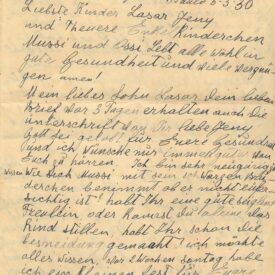 5-3, 30
Liebste Kinder Lasar Jeny
und Theuere Enkel Kinderchen
Mussi und Ossi Lebt alle wohl ur
gute Gesundheit und viele vergnü
gen amen!
Mein lieber Sohn Lasar Dein lieber
Brief vor 3 Tagen erhalten auch die
unterschrift von Dir liebe Jeny
Gott sei gelobt für Euere Gesundheit
und ich Wünsche nur immer gutes von
Euch zu hören. Ich bin sehr neugierig
wissen Wie sich Mussi mit sein schwarzen Brü
derchen benimmt aber nicht eifer
süchtig ist habt Ihr eine gute
Freulein oder kannst Du alleine das
Kind stillen, habt Ihr schon die
gemacht ich möchte
alles wissen, Vor 2 Wochen Sontag habe
ich ein kleines Fest für